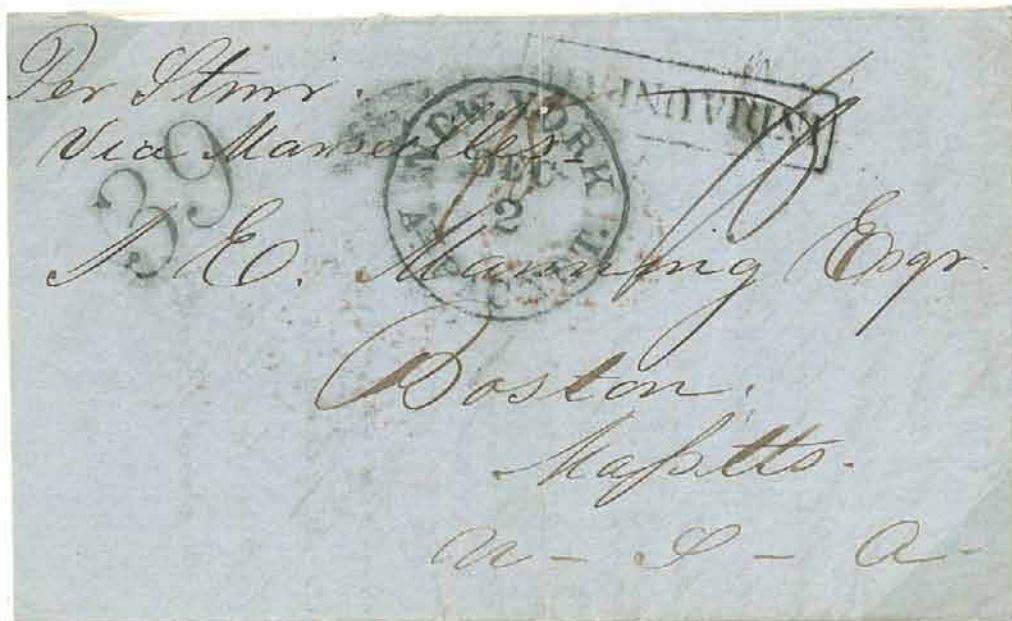 Per Stmr.
Via Marseilles
39
NEW. YORK
DEC
2
A. E. Manning Esqr.
Boston.
Maſstts.
U - S - A -